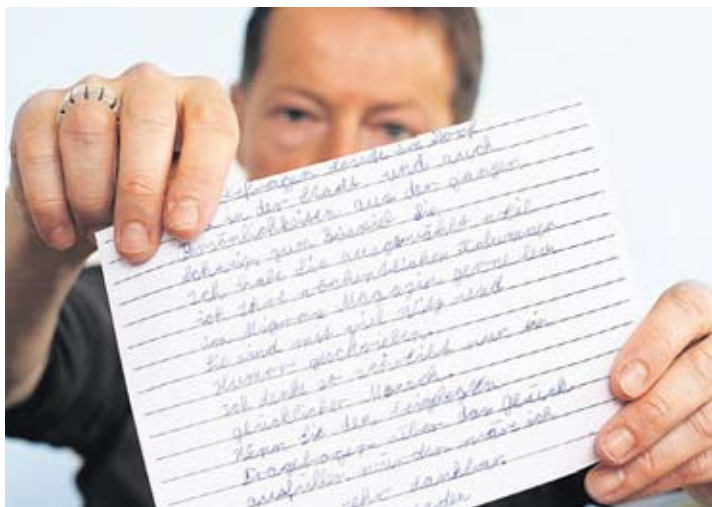 in der Stadt und auch
Persönlichkeiten aus der ganzen
Schweiz zum Beispiel Sie
Ich habe Sie ausgewählt weil
ich Ihre wöchentlichen Kolumnen
im Migros Magazin gerne lese
Sie sind mit viel Witz und
Humor geschrieben.
Ich denke so schreibt nur ein
glücklicher Mensch.
Wenn Sie den beigelegten
Fragebogen über das Glück
ausfüllen würden wäre ich
sehr dankbar.